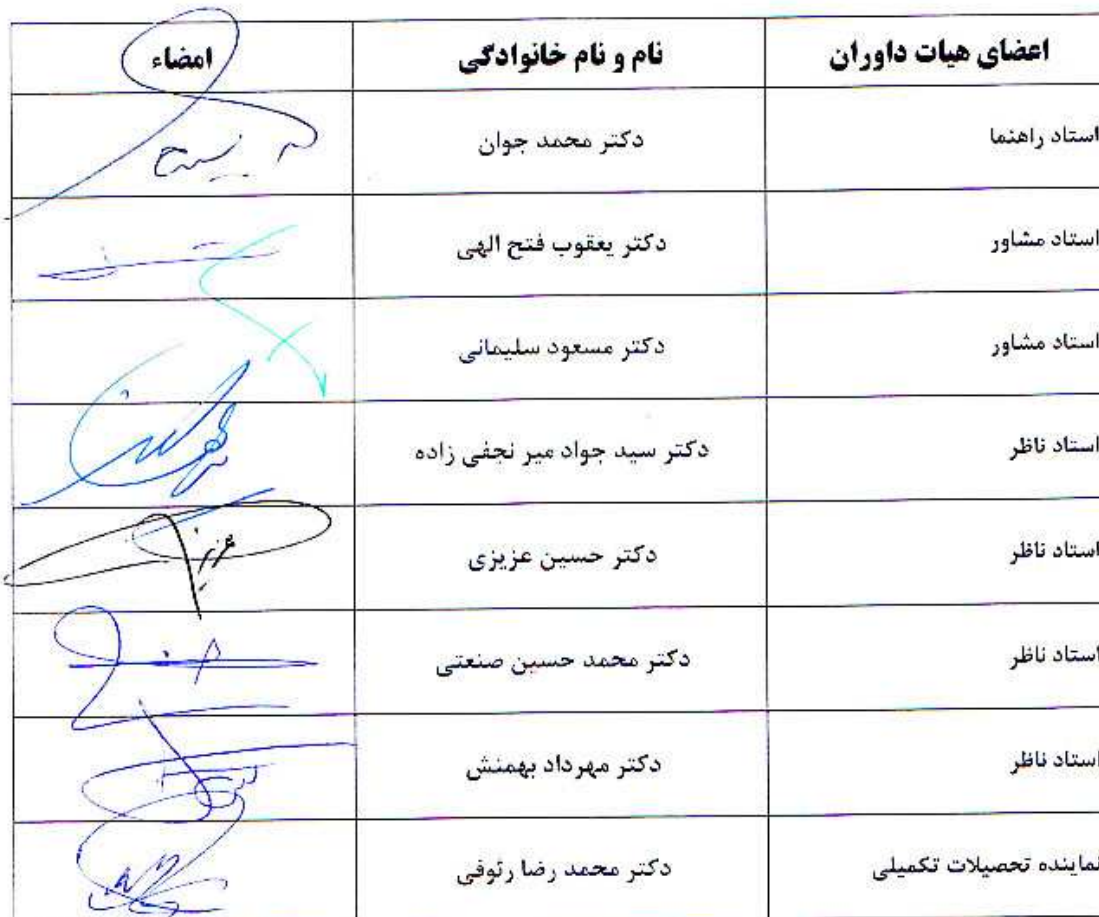 اعضای هیات داوران نام و نام خانوادگی امضاء
استاد راهنما دکتر محمد جوان
استاد مشاور دکتر یعقوب فتح الهی
استاد مشاور دکتر مسعود سلیمانی
استاد ناظر دکتر سید جواد میر نجفی زاده
استاد ناظر دکتر حسین عزیزی
استاد ناظر دکتر محمد حسین صنعتی
استاد ناظر دکتر مهرداد بهمنش
نماینده تحصیلات تکمیلی دکتر محمد رضا رئوفی